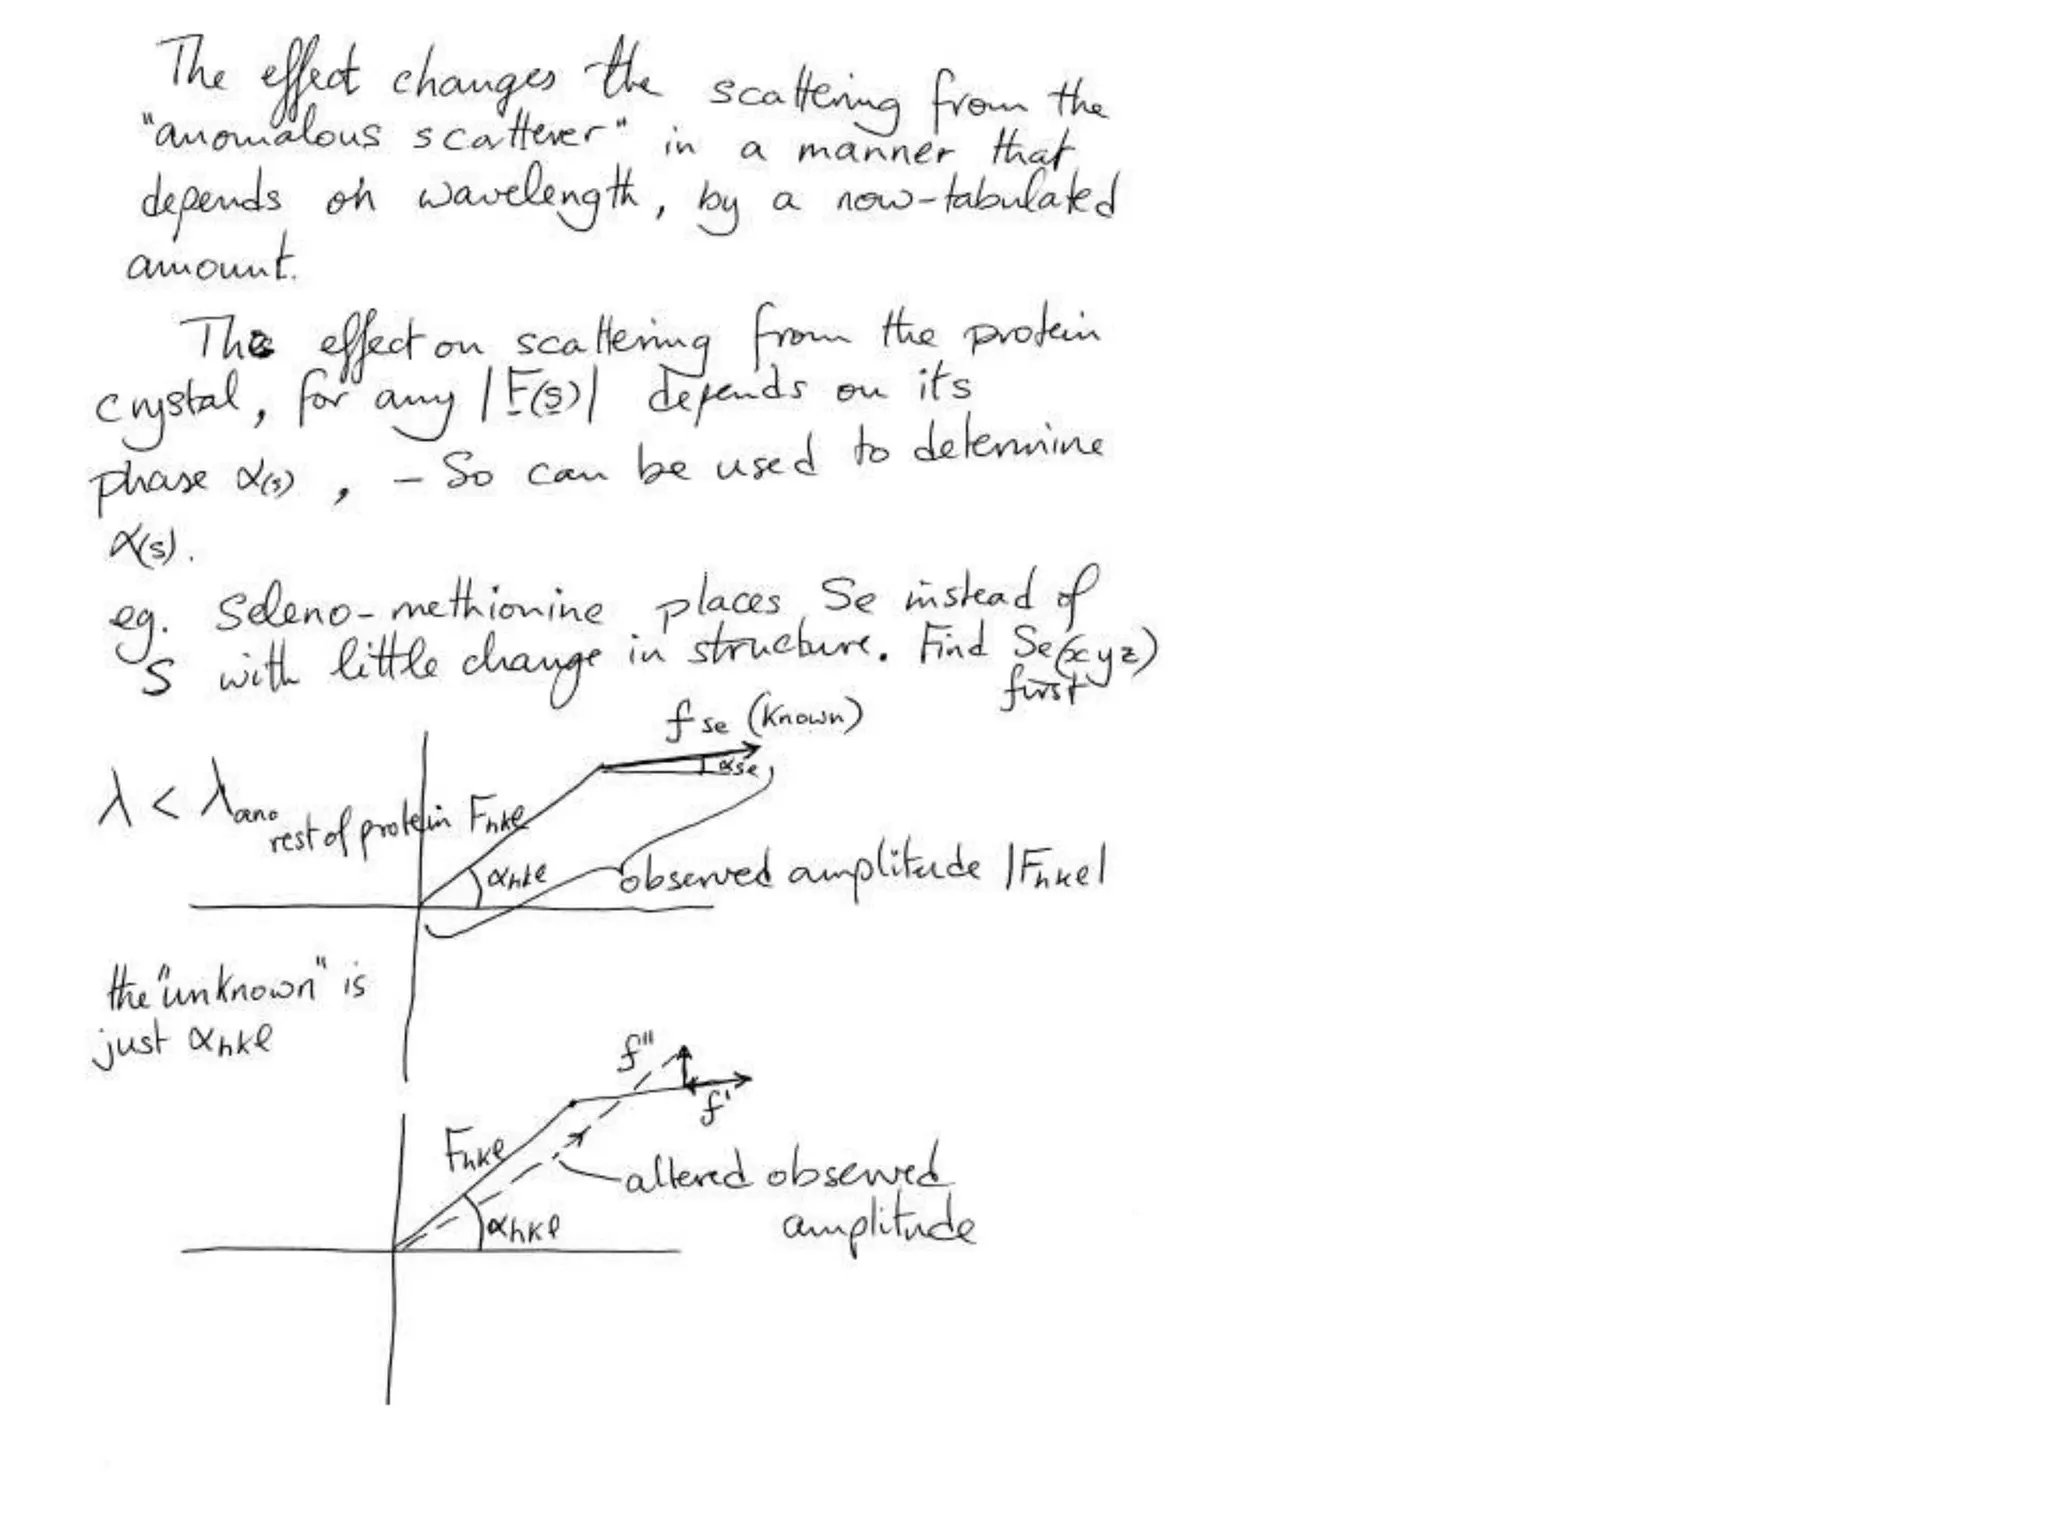 The effect changes the scattering from the
"anomalous scatterer" in a manner that
depends on wavelength, by a now-tabulated
amount.
The effect on scattering from the protein
crystal, for any |F(s)| depends on its
phase α(s), - So can be used to determine
α(s).
eg. Seleno-methionine places Se instead of
S with little change in structure. Find Se(xyz)
first
f se (known)
αse
λ < λano
rest of protein Fhkl
αhkl
observed amplitude |Fhkl|
the "unknown" is
just αhkl
f"
f'
Fhkl
altered observed
amplitude
αhkl